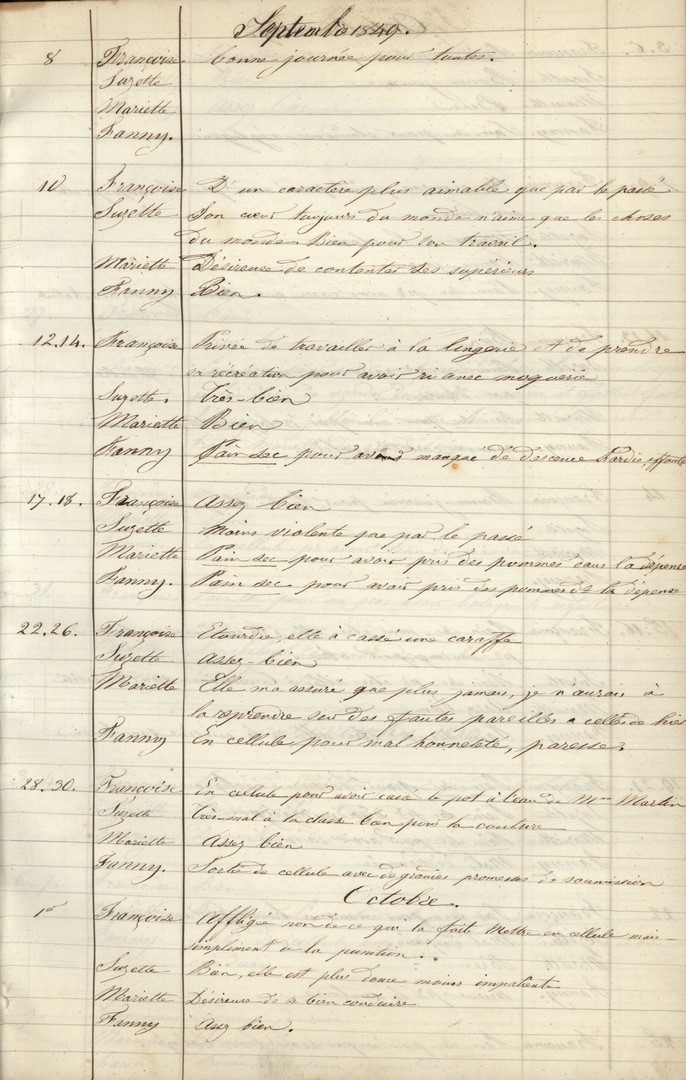 Septembre 1849.
8 Françoise bonne journée pour toutes.
Suzette
Mariette
Fanny.
10 Françoise D'un caractère plus aimable que par le passé
Suzette Son cœur toujours du monde n'aime que les choses
du monde. Bien pour son travail.
Mariette Désireuse de contenter ses supérieurs
Fanny Bien.
12.14. Françoise Privée de travailler à la lingerie et de prendre
sa récréation pour avoir ri avec moquerie
Suzette. Très-bien
Mariette Bien
Fanny Pain sec pour avoir manqué de descence hardie, effrontée
17.18. Françoise Assez bien
Suzette Moins violente que par le passé
Mariette Pain sec pour avoir pris des pommes dans la dépense
Fanny. Pain sec pour avoir pris des pommes ds la dépense
22.26. Françoise Etourdie, elle à cassé une caraffe
Suzette Assez-bien
Mariette Elle m'a assuré que plus jamais, je n'aurais à
la reprendre sur des fautes pareilles a celles de hier
Fanny En cellule pour mal honneteté, paresse.
28.30. Françoise En cellule pour avoir cassé le pot à l'eau de Mme Martin
Suzette Très-mal à la classe bien pour la couture
Mariette Assez bien
Fanny. Sortie de cellule avec de grandes promesses de soumission
Octobre.
1er Françoise Affligée non de ce qui la fait mettre en cellule mais
simplement de la punition.
Suzette Bien, elle est plus douce moins impatient
Mariette Désireuse de se bien conduire
Fanny Assez bien.